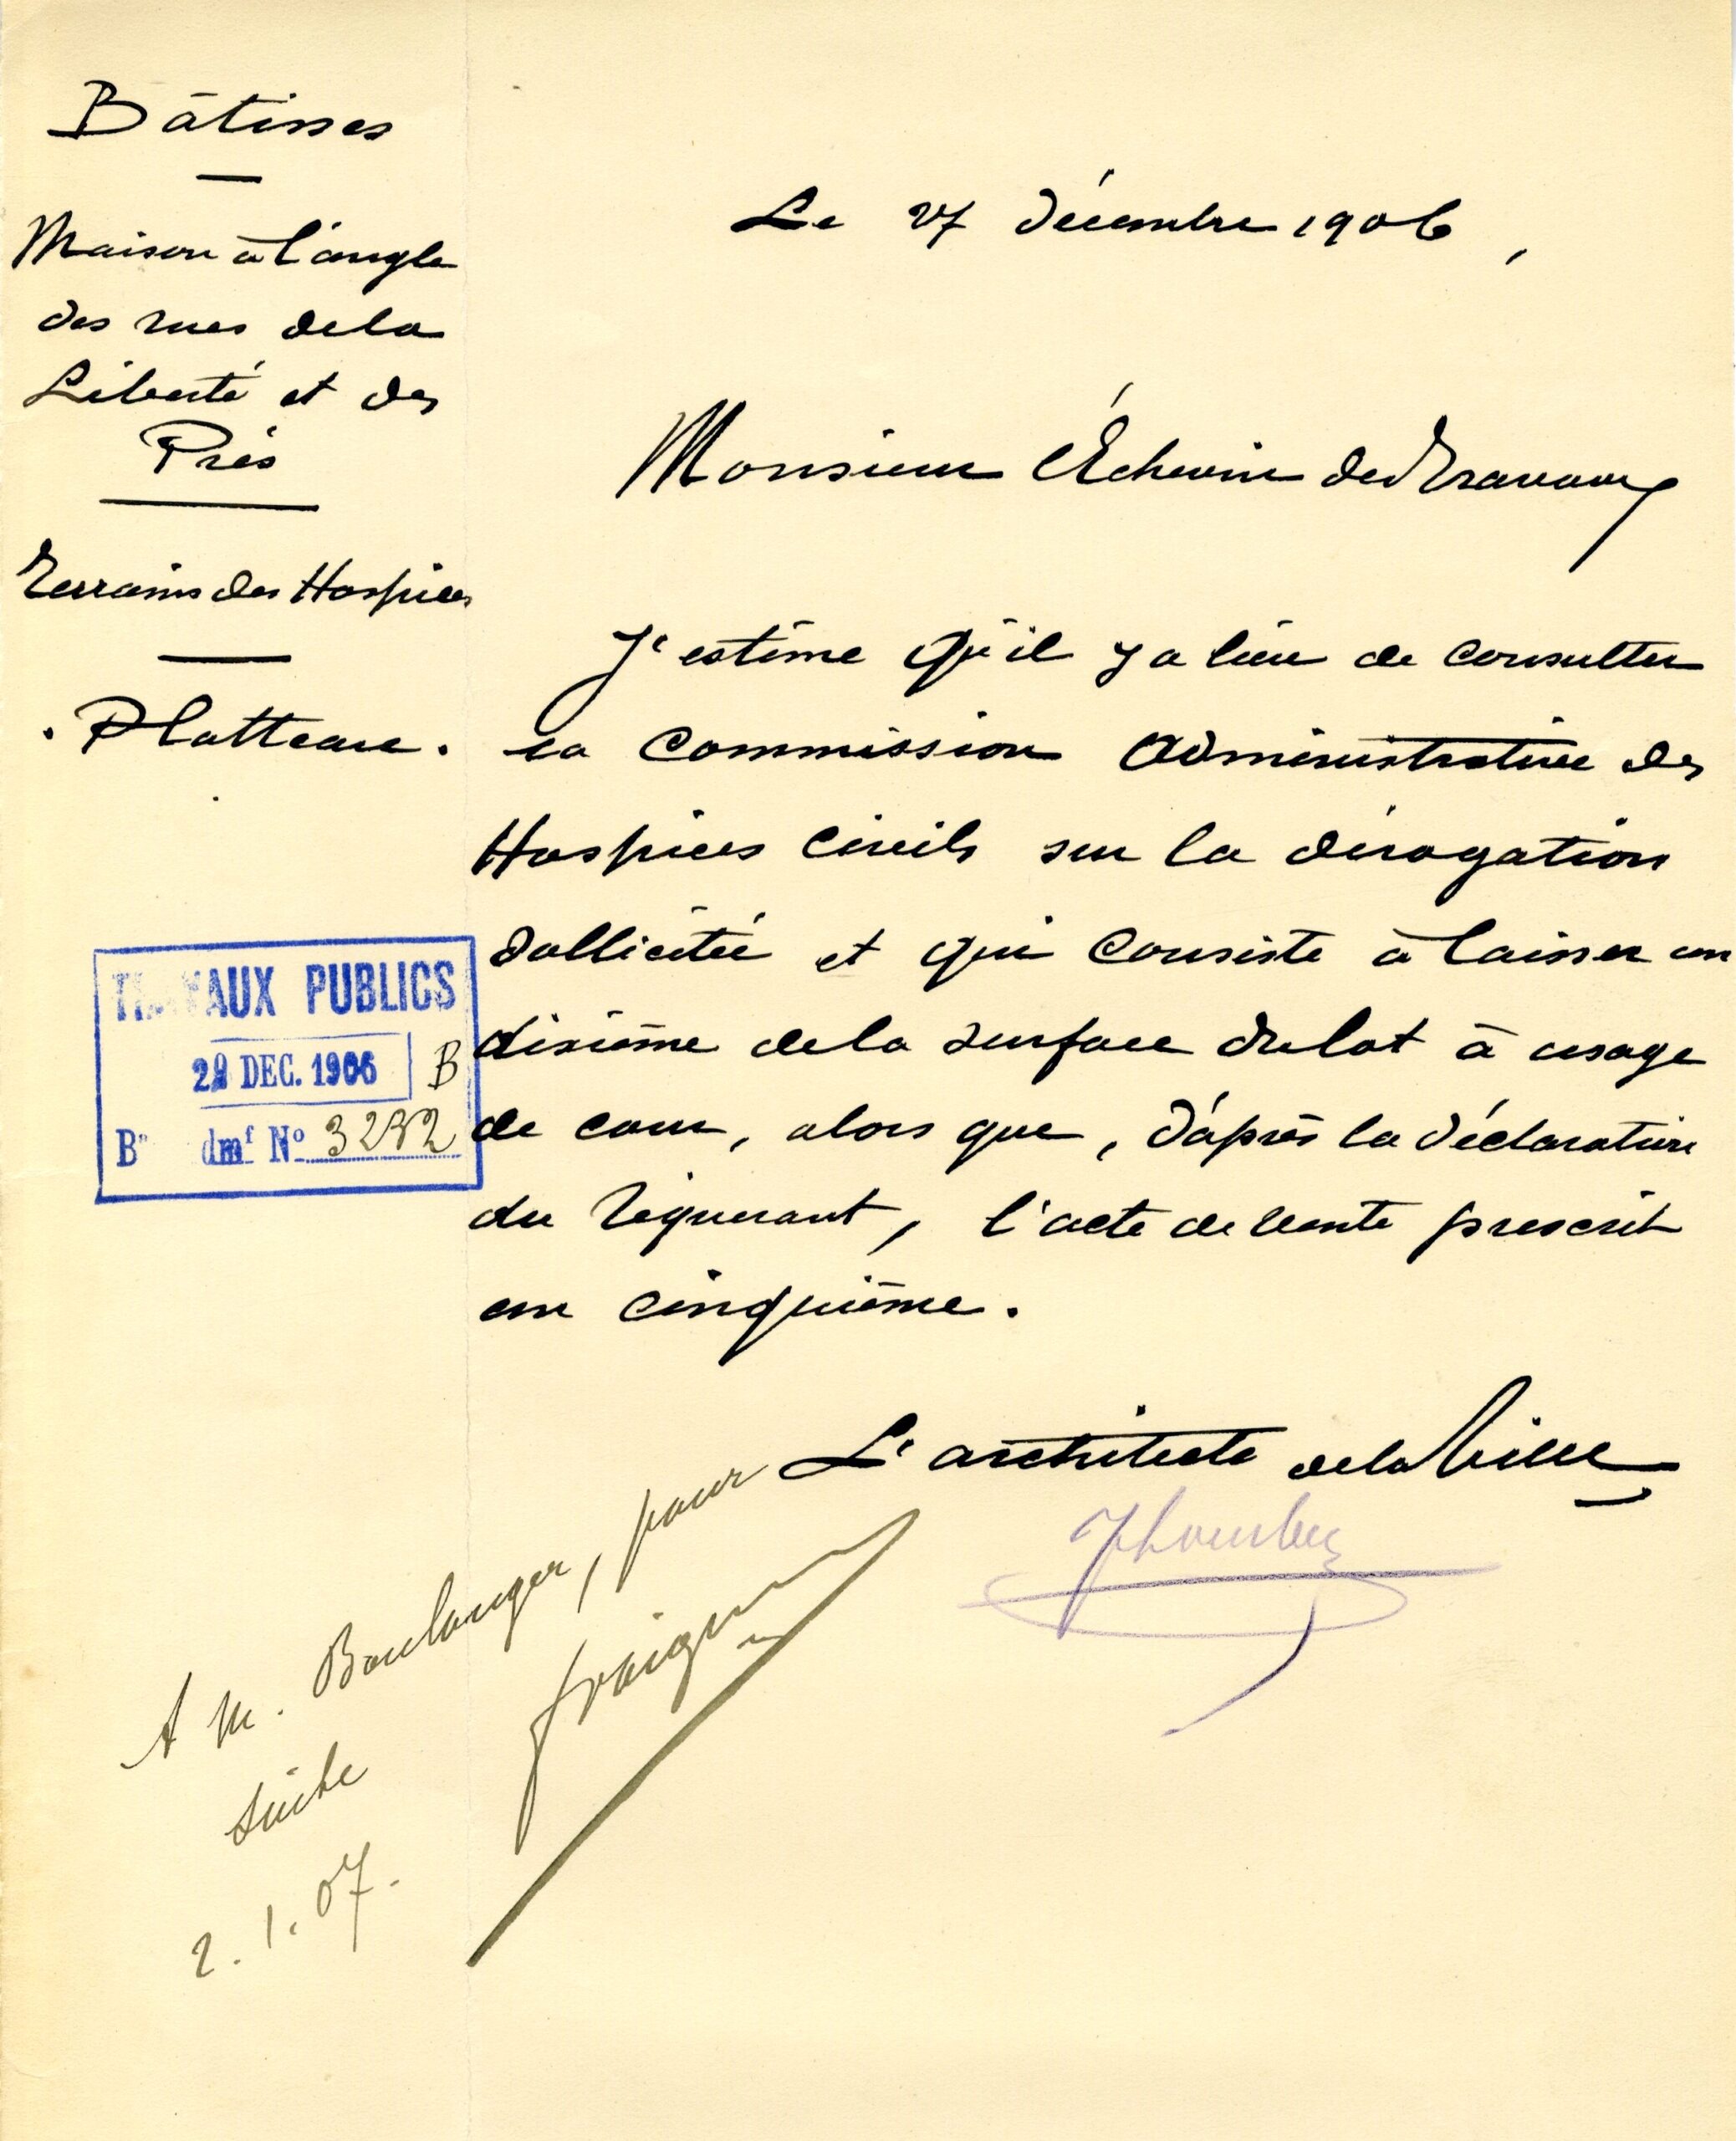 Bâtisses
Maison à l'angle
des rues de la
Liberté et des
Prés
Terrains des Hospices
. Platteau .
Le 27 Décembre 1906,
Monsieur l'Échevin des Travaux
J'estime qu'il y a lieu de consulter
la Commission Administrative des
Hospices Civils sur la dérogation
sollicitée et qui consiste à laisser un
dixième de la surface du lot à usage
de cour, alors que, d'après la déclaration
du requérant, l'acte de vente prescrit
un cinquième.
TRAVAUX PUBLICS
DEC. 1906 B
B dmt No 3232
L'architecte de la Ville
A M. Boulanger, pour
suite
2.1.07.